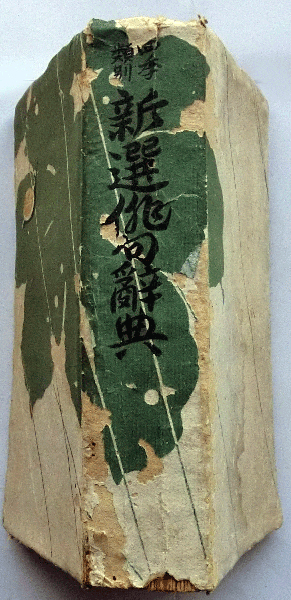 四季
類別
新選俳句辭典